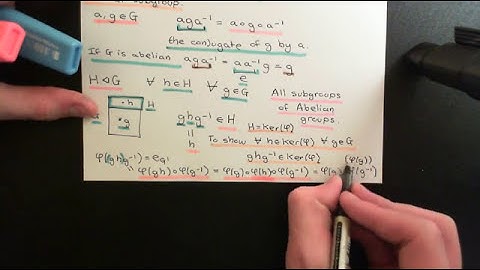 subgroup.
a, g ∈ G aga⁻¹ = a∘g∘a⁻¹
the conjugate of g by a.
If G is abelian aga⁻¹ = aa⁻¹g = g
e
H ◁ G ∀ h∈H ∀ g∈G All subgroups of Abelian groups.
·h H
·g
ghg⁻¹ ∈ H H=Ker(φ)
h To show ∀ h∈ker(φ) ∀ g∈G
ghg⁻¹ ∈ ker(φ) (φ(g))
φ(ghg⁻¹) = e_G'
φ(gh)∘φ(g⁻¹) = φ(g)∘φ(h)∘φ(g⁻¹) = φ(g) φ(g⁻¹)